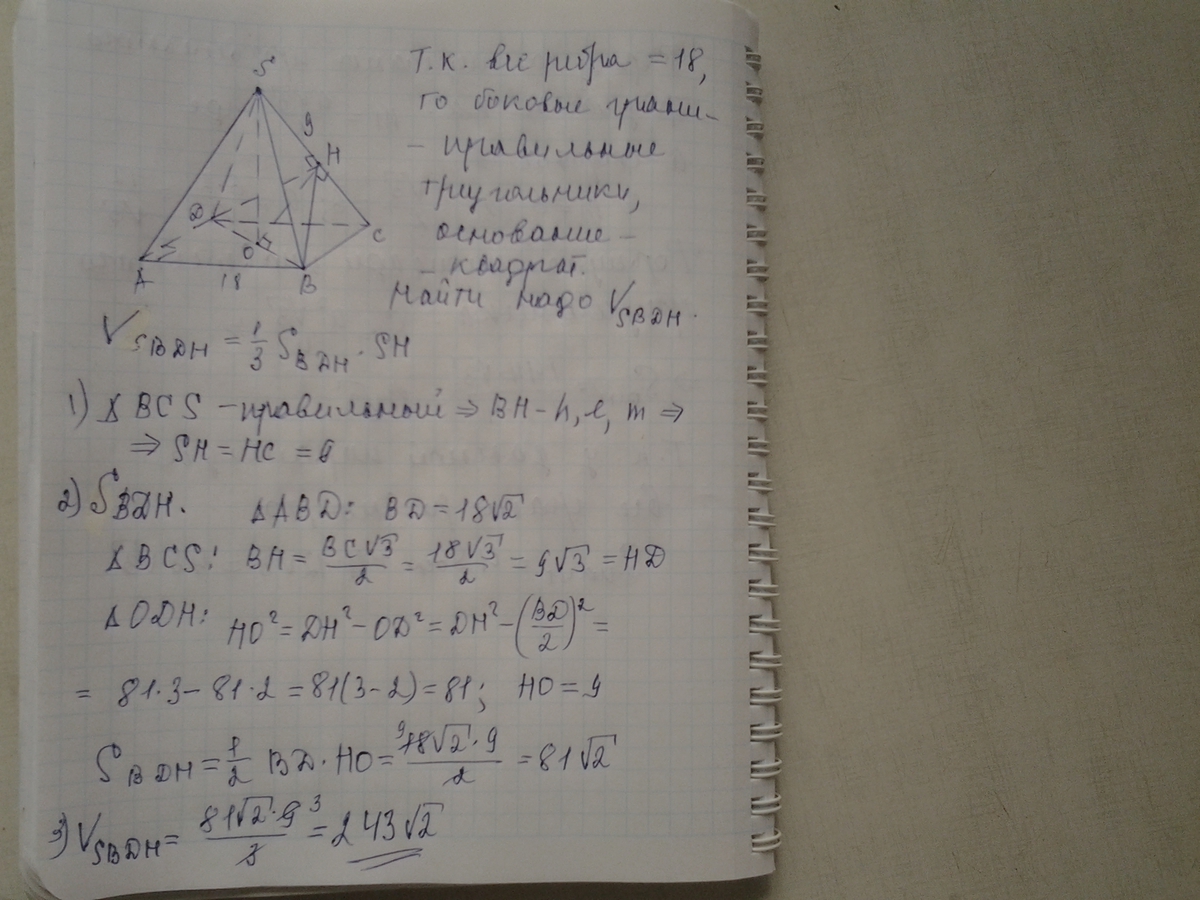 S
9
H
D
C
O
A
18
B
Т.к. все ребра = 18,
то боковые грани -
- правильные
треугольники,
основание -
- квадрат.
Найти надо V_SBDH.
V_SBDH = 1/3 S_BDH · SH
1) Δ BCS - правильный ⇒ BH - h, l, m ⇒
⇒ SH = HC = 9
2) S_BDH. Δ ABD: BD = 18√2
Δ BCS: BH = BC√3/2 = 18√3/2 = 9√3 = HD
Δ ODH: HO² = DH² - OD² = DH² - (BD/2)² =
= 81·3 - 81·2 = 81(3-2) = 81; HO = 9
S_BDH = 1/2 BD · HO = 18√2·9/2 = 81√2
3) V_SBDH = 81√2·9/3 = 243√2